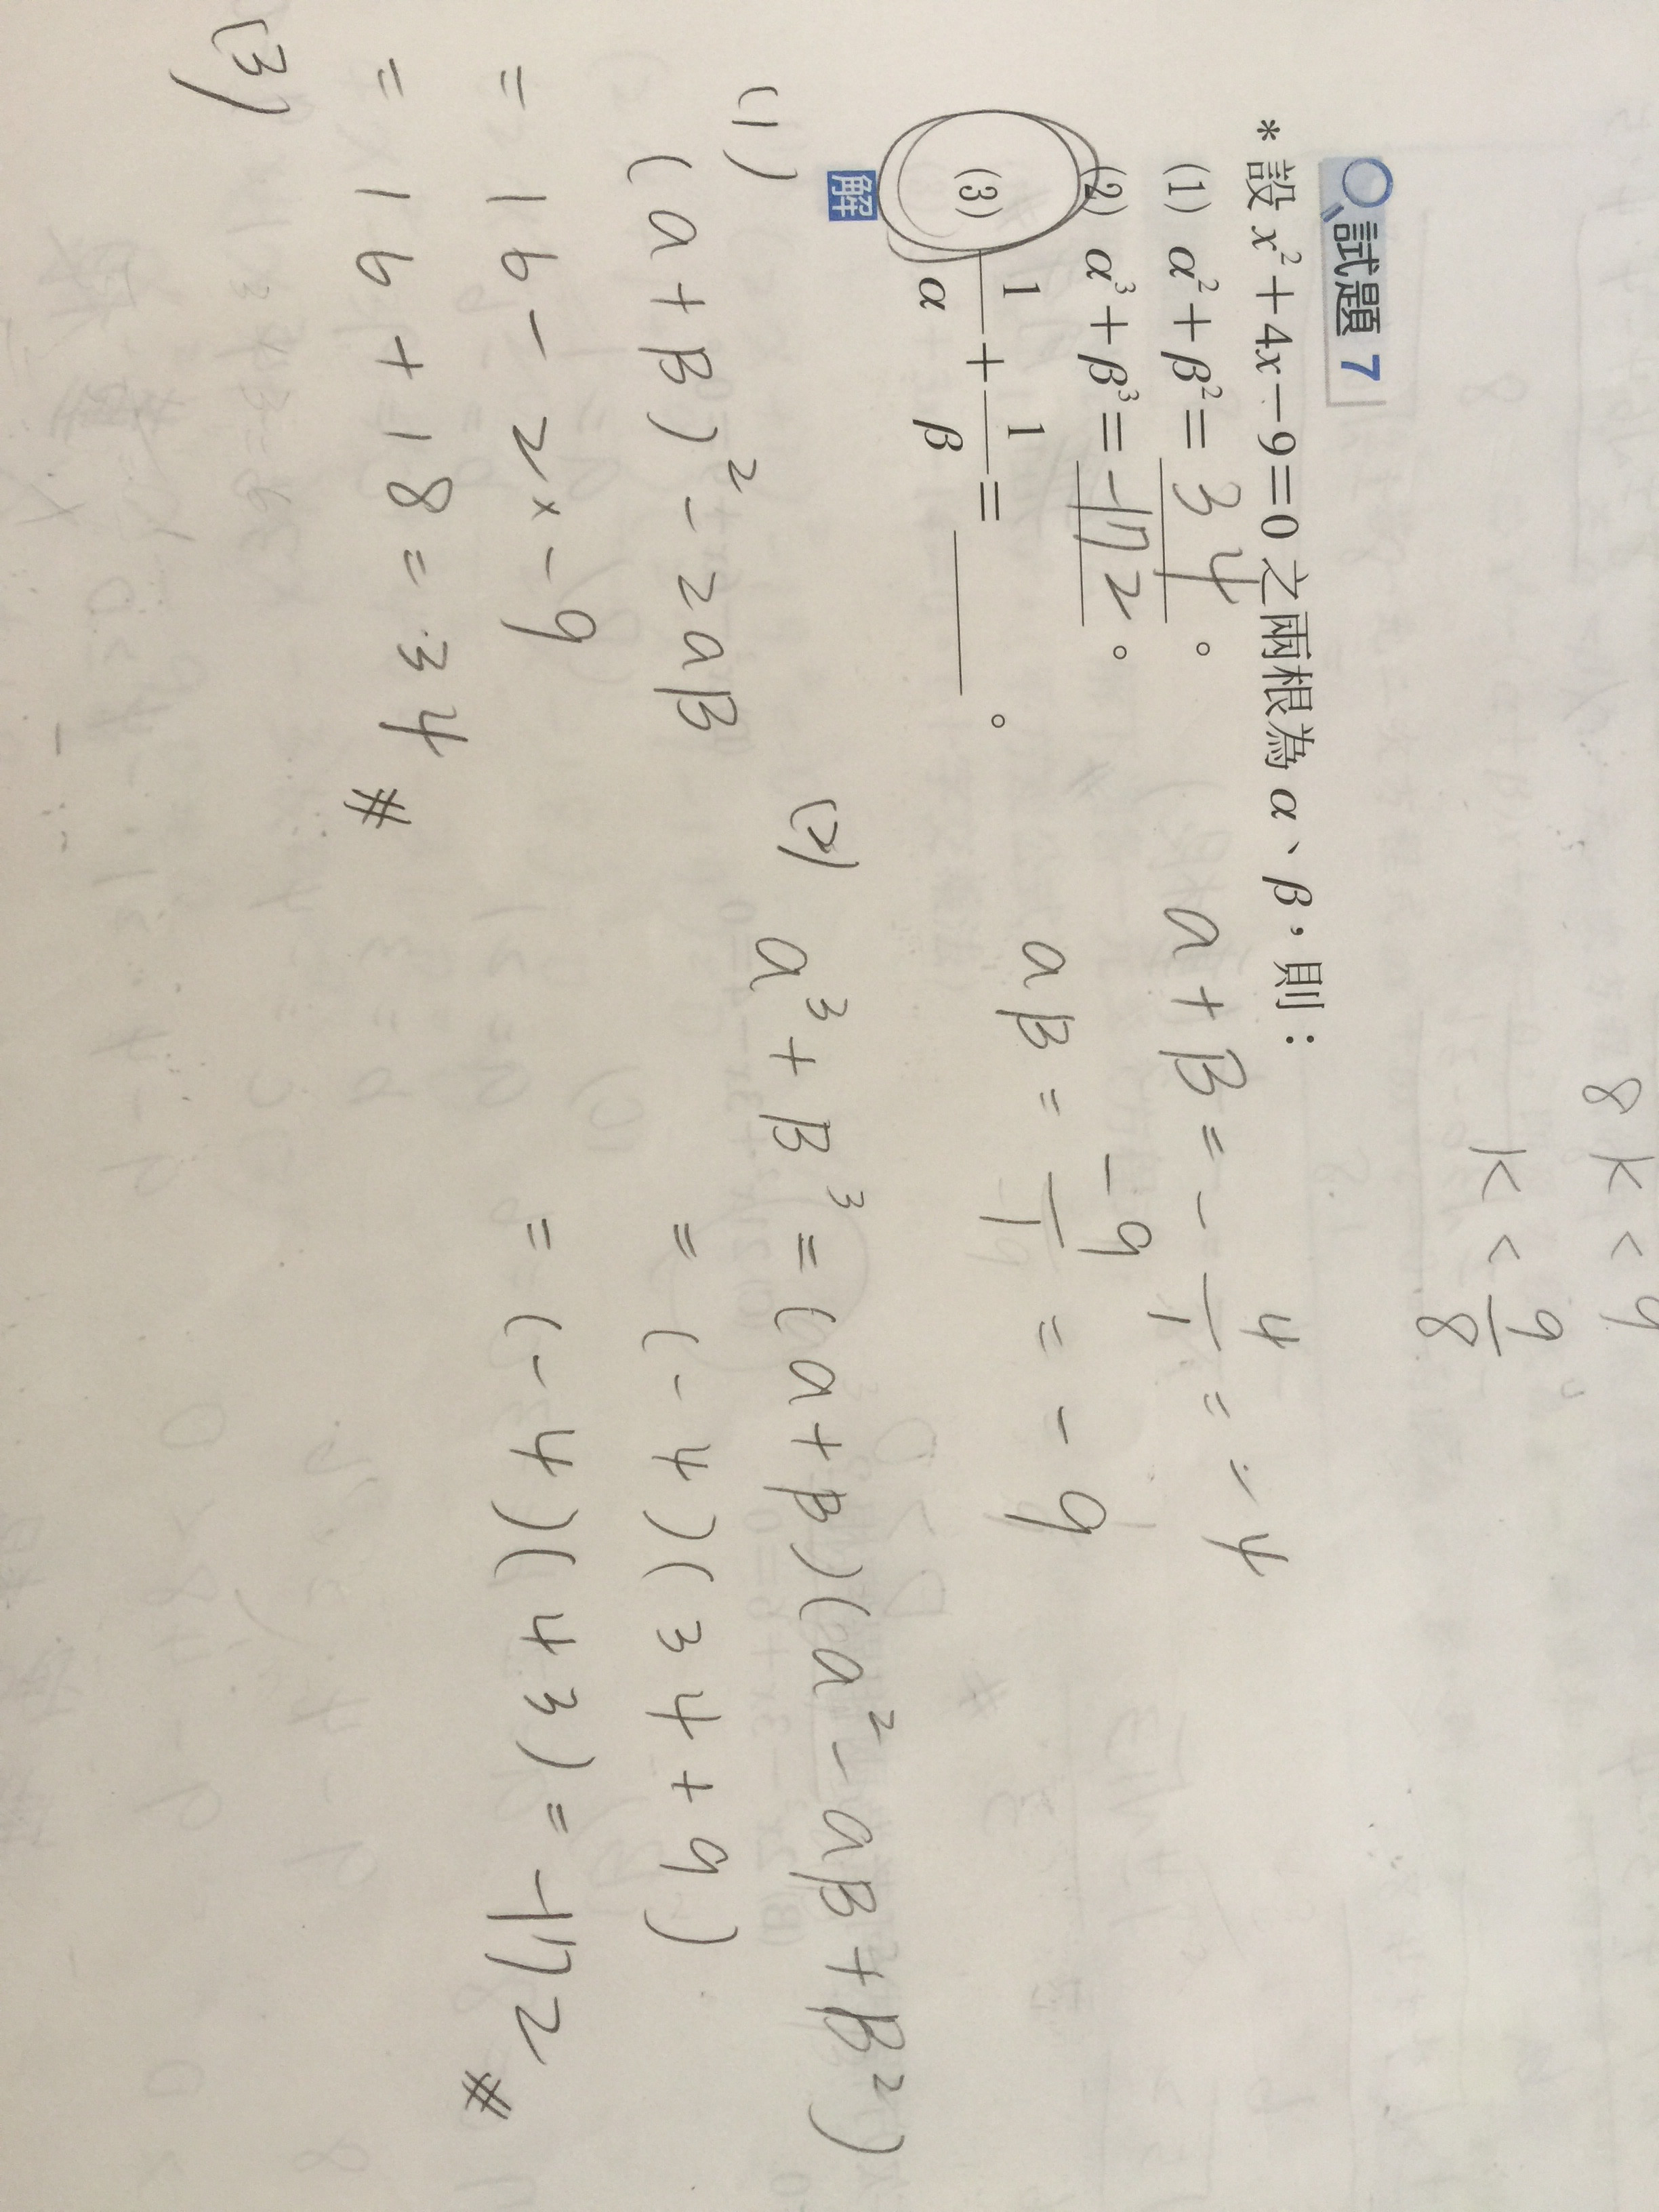 8k<9
k<9/8
試題 7
*設 x²+4x−9=0 之兩根為 α、β，則：
(1) α²+β²=34。
(2) α³+β³=-172。
(3) 1/α+1/β=____。
解
a+β=-4/1=-4
aβ=-9/1=-9
(1)
(a+β)²-2aβ
=16-2×-9
=16+18=34 #
(2) a³+β³=(a+β)(a²-aβ+β²)
=(-4)(34+9)
=(-4)(43)=-172 #
(3)